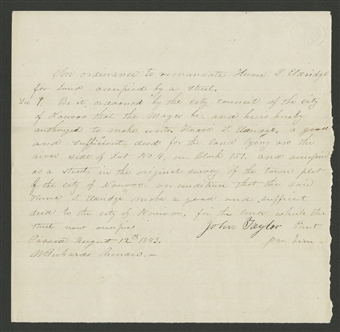 An ordinance to remunerate Hiram T.
for land occupied by a street.
Sec 1. Be it ordained by the city council of the city
of Nauvoo that the Mayor be, and he is hereby
authorized to make unto Hiram T. a good
and sufficient deed for the land lying on the
river side of Lot No 4, in Block 151. and
as a street in the original survey of the town plot
of the city of Nauvoo on condition that the said
Hiram T. make a good and sufficient
deed to the city of Nauvoo, for the land which the
street now occupies
John Taylor Prest
Passed August 12th 1843. pro. tem
W Richards Recorder.